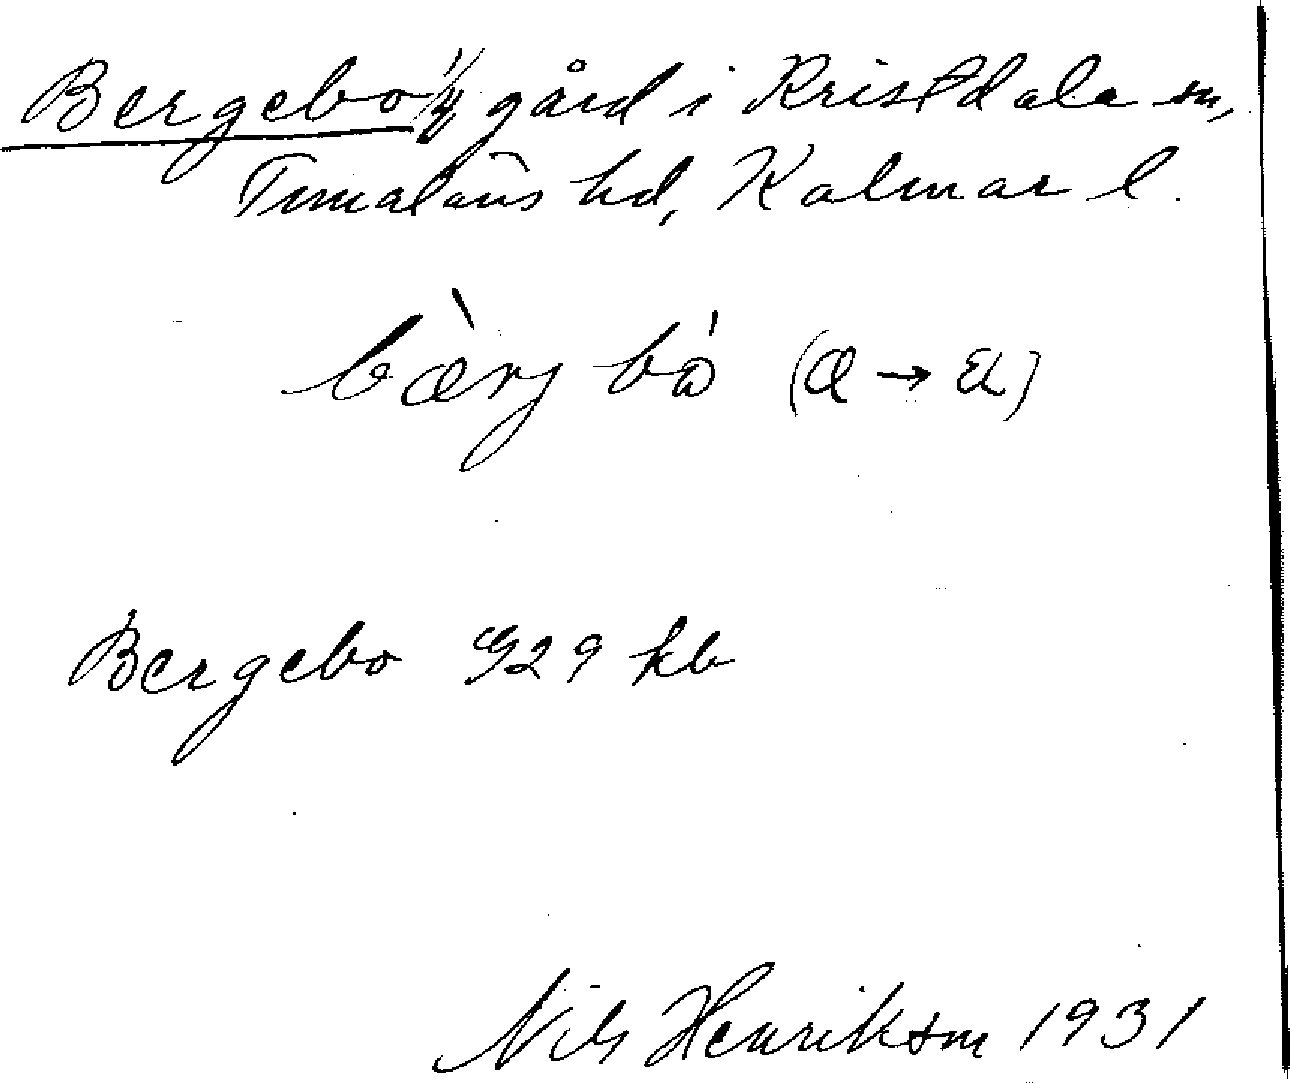 Bergebo 1/4 gård i Kristdala sn,
Tunaläns hd, Kalmar l.
bærj bò (a → ä)
Bergebo 929 kb
Nils Henrikson 1931